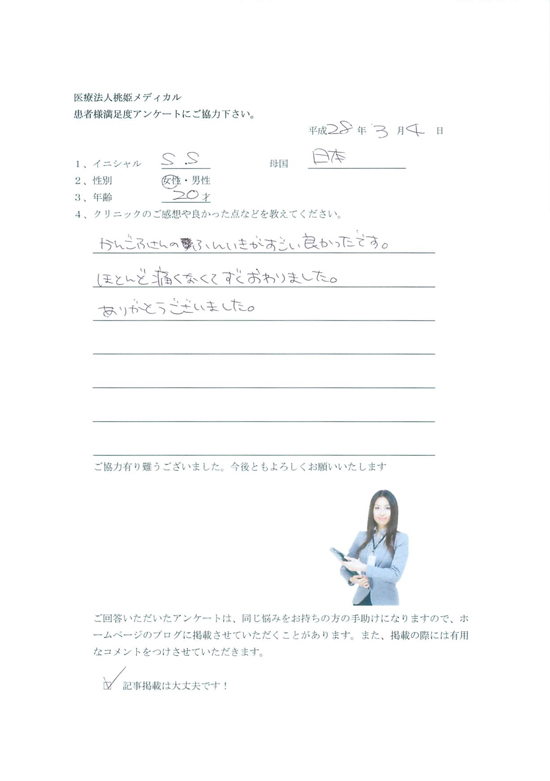 医療法人桃姫メディカル
患者様満足度アンケートにご協力下さい。
平成28年 3月4日
1、イニシャル S.S 母国 日本
2、性別 女性・男性
3、年齢 20才
4、クリニックのご感想や良かった点などを教えてください。
かんごふさんのふんいきがすごい良かったです。
ほとんど痛くなくてすぐおわりました。
ありがとうございました。
ご協力有り難うございました。今後ともよろしくお願いいたします
ご回答いただいたアンケートは、同じ悩みをお持ちの方の手助けになりますので、ホ
ームページのブログに掲載させていただくことがあります。また、掲載の際には有用
なコメントをつけさせていただきます。
☑ 記事掲載は大丈夫です！